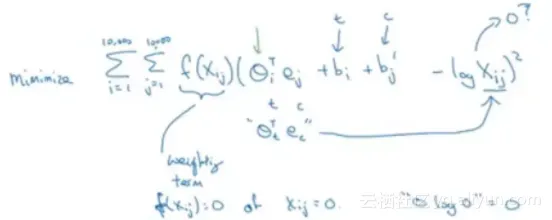 t c 0?
minimize \sum_{i=1}^{10,000} \sum_{j=1}^{10,000} f(X_{ij}) (θ_i^T e_j + b_i + b_j' - log X_{ij})^2
t c
"θ_t^T e_c"
weighting
term
f(X_{ij}) = 0 if X_{ij} = 0. "0 log 0" = 0
云栖社区 yq.aliyun.com